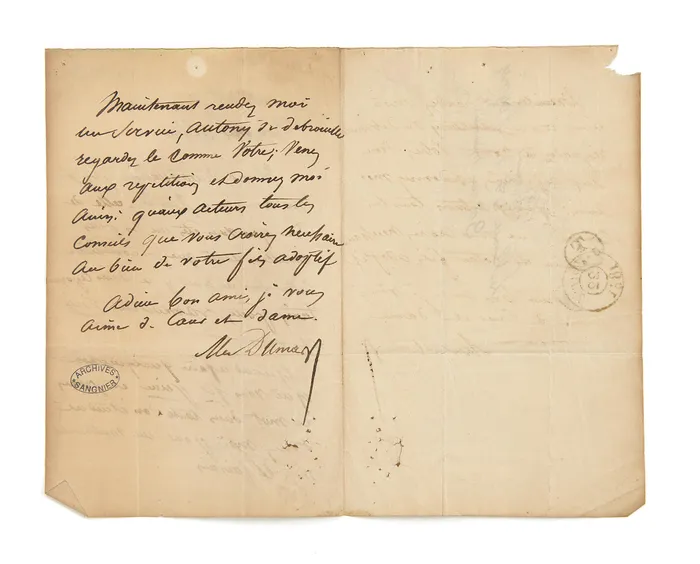 Maintenant rendez moi
un Service, Antony se debrouille
regardez le comme Votre; Venez
aux repetitions et donnez moi
ainsi qu'aux acteurs tous les
Conseils que vous croirez necessaire
au bien de votre fils adoptif
Adieu bon ami, je vous
aime de Cœur et d'ame.
Alex Dumas
ARCHIVES
SANGNIER